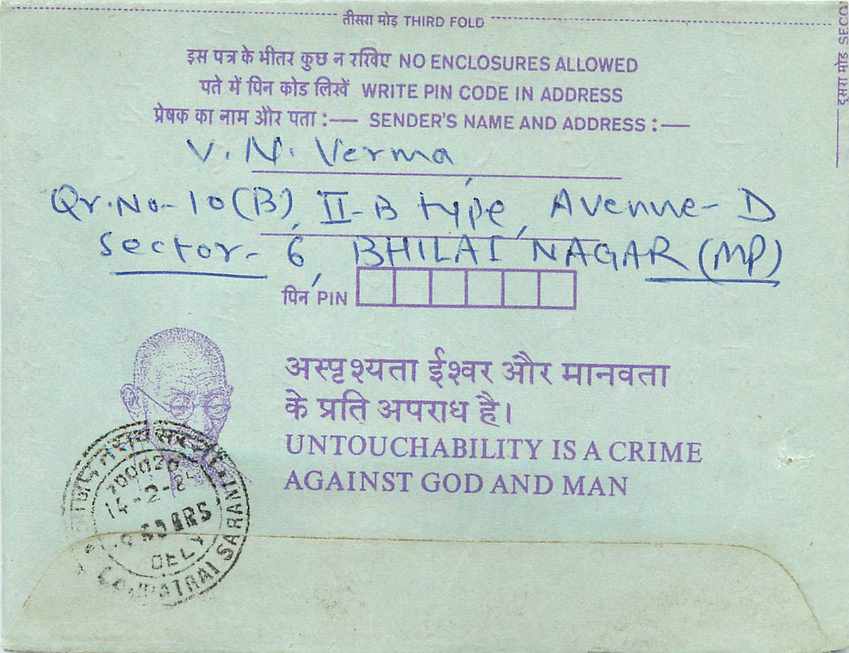 तीसरा मोड़ THIRD FOLD
दूसरा मोड़ SECO
इस पत्र के भीतर कुछ न रखिए NO ENCLOSURES ALLOWED
पते में पिन कोड लिखें WRITE PIN CODE IN ADDRESS
प्रेषक का नाम और पता :— SENDER'S NAME AND ADDRESS :—
V. N. Verma
Qr. No- 10 (B), II-B type, Avenue- D
Sector- 6, BHILAI NAGAR (MP)
पिन PIN
अस्पृश्यता ईश्वर और मानवता
के प्रति अपराध है।
UNTOUCHABILITY IS A CRIME
AGAINST GOD AND MAN
700020
14-2-84
HRS
DELY
LAJPATRAI SARANI